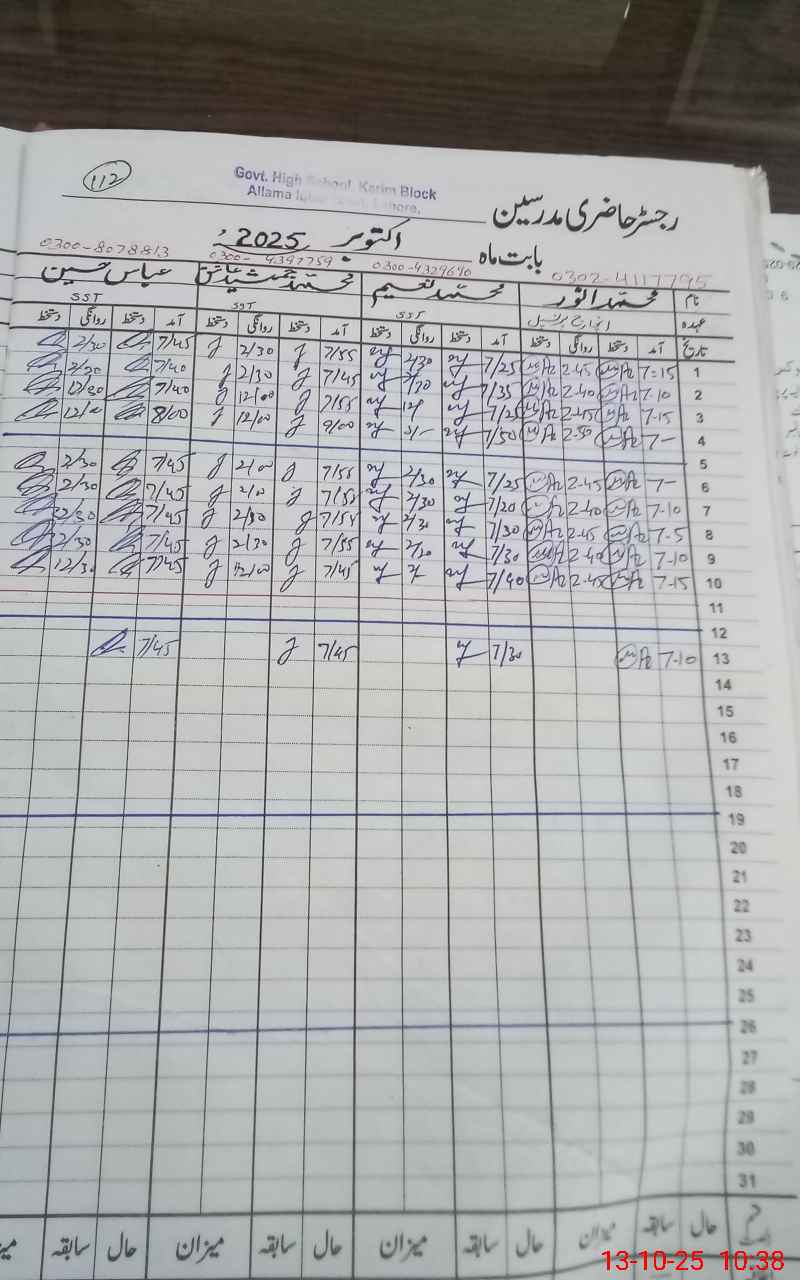 112
Govt. High School, Karim Block
Allama Iqbal Town, Lahore.
رجسٹر حاضری مدرسین
بابت ماہ اکتوبر 2025ء
0302-4117795 0300-4329640 0300-4397759 0300-8078813
نام محمد انور محمد نعیم محمد جمشید عباس حسین
عہدہ انچارج پرنسپل SST SST SST
تاریخ آمد دستخط روانگی دستخط آمد دستخط روانگی دستخط آمد دستخط روانگی دستخط آمد دستخط روانگی دستخط
1 7=15 2-45 7/25 2/30 7/55 2/30 7/45 2/30
2 7-10 2-40 7/35 7/45 2/30 7/40 2/30
3 7-15 2-45 7/25 7/55 12/00 7/40 12/30
4 7- 2-30 7/50 9/00 12/00 8/00
5
6 7- 2-45 7/25 2/30 7/55 2/00 7/45 2/30
7 7-10 2-40 7/20 2/30 7/55 7/45 2/30
8 7-5 2-45 7/30 2/30 7/55 2/30 7/45
9 7-10 2-40 7/30 2/30 7/55 2/30 7/45
10 7-15 2-45 7/40 7/45 12/00 7/45 12/30
11
12
13 7-10 7/30 7/45 7/45
14
15
16
17
18
19
20
21
22
23
24
25
26
27
28
29
30
31
حال سابقہ میزان حال سابقہ میزان حال سابقہ میزان حال سابقہ
13-10-25 10:38